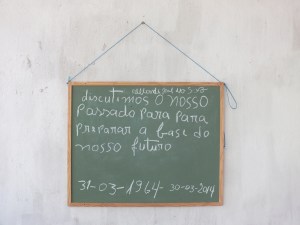 discutimos o nosso
passado para para
preparar a base do
nosso futuro
31-03-1964- 30-03-2014